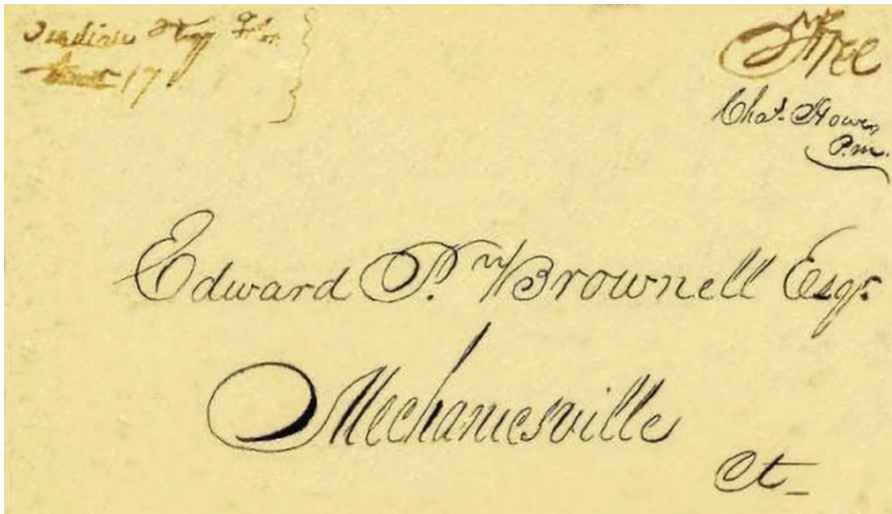 Indian Key Flor
17
Free
Chas. Howe
P.m.
Edward P. Brownell Esqr.
Mechanicsville
Ct_